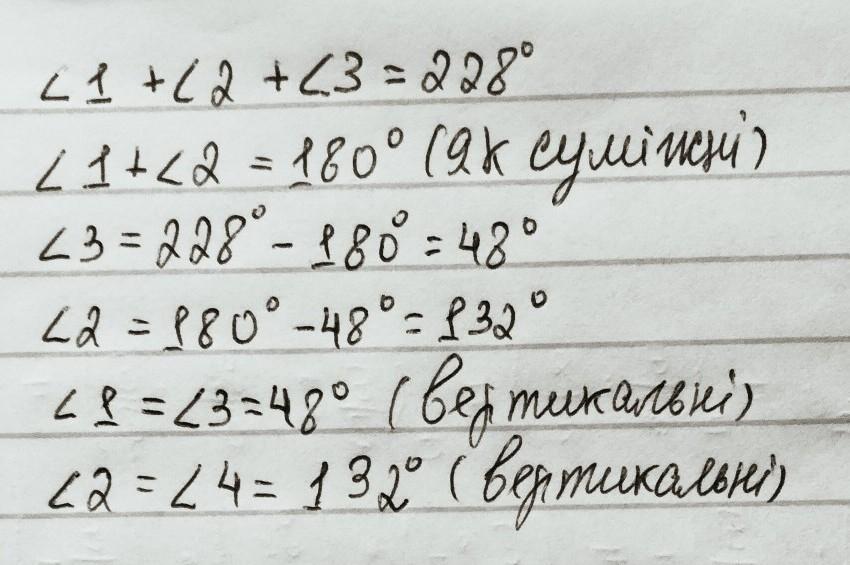 ∠1 + ∠2 + ∠3 = 228°
∠1 + ∠2 = 180° (як суміжні)
∠3 = 228° - 180° = 48°
∠2 = 180° - 48° = 132°
∠1 = ∠3 = 48° (вертикальні)
∠2 = ∠4 = 132° (вертикальні)